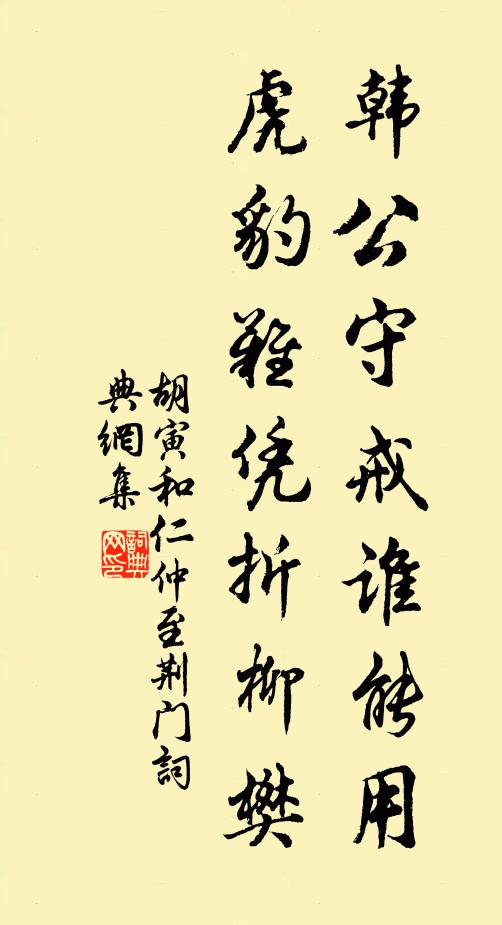 韩公守戒谁能用
虎豹难凭折柳樊
胡寅和仁仲至荆门词
典網集
詞典
网印